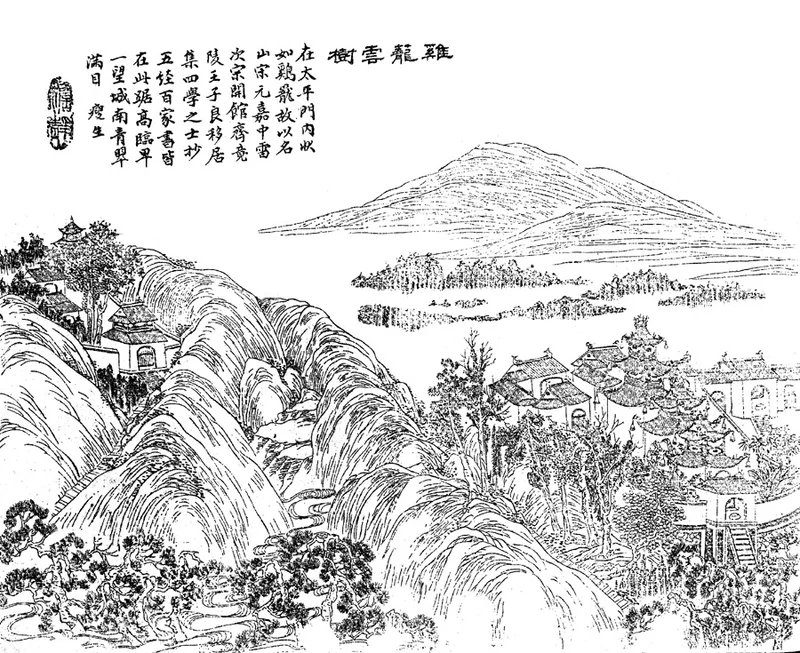 雞籠雲樹
在太平門内狀
如鷄籠故以名
山宋元嘉中雷
次宗開館齊竟
陵王子良移居
集四學之士抄
五經百家書皆
在此踞高臨阜
一望城南青翠
滿目 瘦生